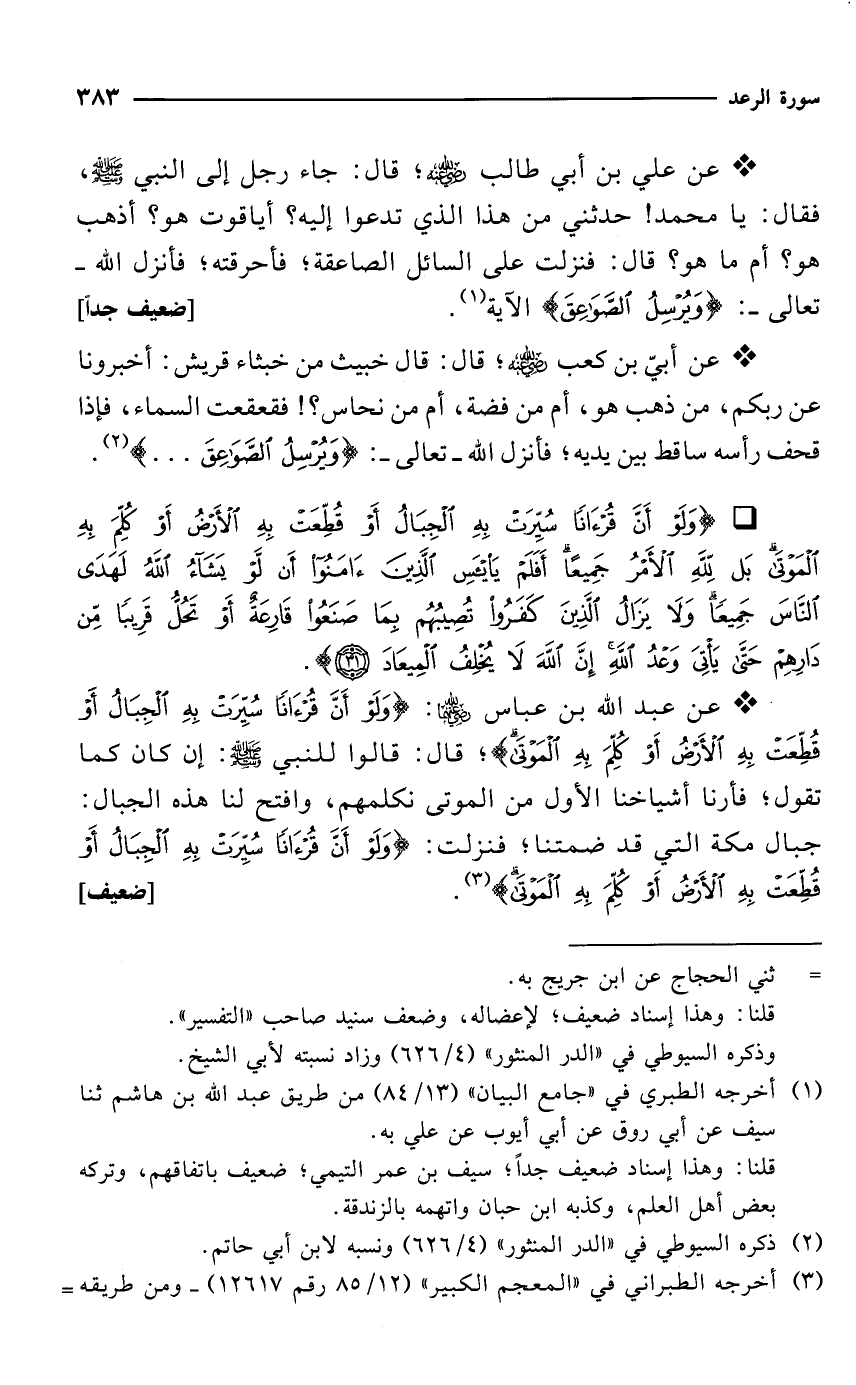 سورة الرعد ٣٨٣
❖ عن علي بن أبي طالب رضي الله عنه؛ قال: جاء رجل إلى النبي ﷺ،
فقال: يا محمد! حدثني من هذا الذي تدعوا إليه؟ أياقوت هو؟ أذهب
هو؟ أم ما هو؟ قال: فنزلت على السائل الصاعقة؛ فأحرقته؛ فأنزل الله ـ
تعالى ـ: ﴿وَيُرْسِلُ ٱلصَّوَٰعِقَ﴾ الآية(١). [ضعيف جداً]
❖ عن أبيّ بن كعب رضي الله عنه؛ قال: قال خبيث من خبثاء قريش: أخبرونا
عن ربكم، من ذهب هو، أم من فضة، أم من نحاس؟! فقعقعت السماء، فإذا
قحف رأسه ساقط بين يديه؛ فأنزل الله ـ تعالى ـ: ﴿وَيُرْسِلُ ٱلصَّوَٰعِقَ . . .﴾(٢).
❑ ﴿وَلَوْ أَنَّ قُرْءَانًا سُيِّرَتْ بِهِ ٱلْجِبَالُ أَوْ قُطِّعَتْ بِهِ ٱلْأَرْضُ أَوْ كُلِّمَ بِهِ
ٱلْمَوْتَىٰۗ بَل لِّلَّهِ ٱلْأَمْرُ جَمِيعًاۗ أَفَلَمْ يَا۟يْـَٔسِ ٱلَّذِينَ ءَامَنُوٓا۟ أَن لَّوْ يَشَآءُ ٱللَّهُ لَهَدَى
ٱلنَّاسَ جَمِيعًاۗ وَلَا يَزَالُ ٱلَّذِينَ كَفَرُوا۟ تُصِيبُهُم بِمَا صَنَعُوا۟ قَارِعَةٌ أَوْ تَحُلُّ قَرِيبًا مِّن
دَارِهِمْ حَتَّىٰ يَأْتِىَ وَعْدُ ٱللَّهِۚ إِنَّ ٱللَّهَ لَا يُخْلِفُ ٱلْمِيعَادَ ٣١﴾.
❖ عن عبد الله بن عباس رضي الله عنهما: ﴿وَلَوْ أَنَّ قُرْءَانًا سُيِّرَتْ بِهِ ٱلْجِبَالُ أَوْ
قُطِّعَتْ بِهِ ٱلْأَرْضُ أَوْ كُلِّمَ بِهِ ٱلْمَوْتَىٰۗ﴾؛ قال: قالوا للنبي ﷺ: إن كان كما
تقول؛ فأرنا أشياخنا الأول من الموتى نكلمهم، وافتح لنا هذه الجبال:
جبال مكة التي قد ضمتنا؛ فنزلت: ﴿وَلَوْ أَنَّ قُرْءَانًا سُيِّرَتْ بِهِ ٱلْجِبَالُ أَوْ
قُطِّعَتْ بِهِ ٱلْأَرْضُ أَوْ كُلِّمَ بِهِ ٱلْمَوْتَىٰۗ﴾(٣). [ضعيف]
= ثني الحجاج عن ابن جريج به.
قلنا: وهذا إسناد ضعيف؛ لإعضاله، وضعف سنيد صاحب «التفسير».
وذكره السيوطي في «الدر المنثور» (٤/ ٦٢٦) وزاد نسبته لأبي الشيخ.
(١) أخرجه الطبري في «جامع البيان» (١٣/ ٨٤) من طريق عبد الله بن هاشم ثنا
سيف عن أبي روق عن أبي أيوب عن علي به.
قلنا: وهذا إسناد ضعيف جداً؛ سيف بن عمر التيمي؛ ضعيف باتفاقهم، وتركه
بعض أهل العلم، وكذبه ابن حبان واتهمه بالزندقة.
(٢) ذكره السيوطي في «الدر المنثور» (٤/ ٦٢٦) ونسبه لابن أبي حاتم.
(٣) أخرجه الطبراني في «المعجم الكبير» (١٢/ ٨٥ رقم ١٢٦١٧) ـ ومن طريقه =